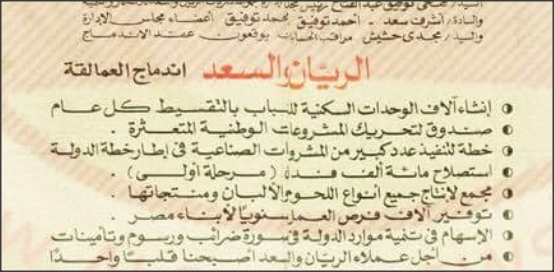 السيد/ فتحى توفيق عبد الفتاح رئيس مجلس
والسادة/ أشرف سعد - أحمد توفيق - محمد توفيق أعضاء مجلس الإدارة
والسيد/ مجدى حشيش مراقب الحسابات يوقعون عقد الاندماج
الريان والسعد اندماج العمالقة
إنشاء آلاف الوحدات السكنية للشباب بالتقسيط كل عام
صندوق لتحريك المشروعات الوطنية المتعثرة .
خطة لتنفيذ عدد كبير من المشروات الصناعية فى إطار خطة الدولة
استصلاح مائة ألف فدان ( مرحلة أولى ) .
مجمع لإنتاج جميع أنواع اللحوم والألبان ومنتجاتها .
توفير آلاف فرص العمل سنويا لأبناء مصر .
الإسهام فى تنمية موارد الدولة فى صورة ضرائب ورسوم وتأمينات
من أجل عملاء الريان والسعد أصبحنا قلبًا واحدًا